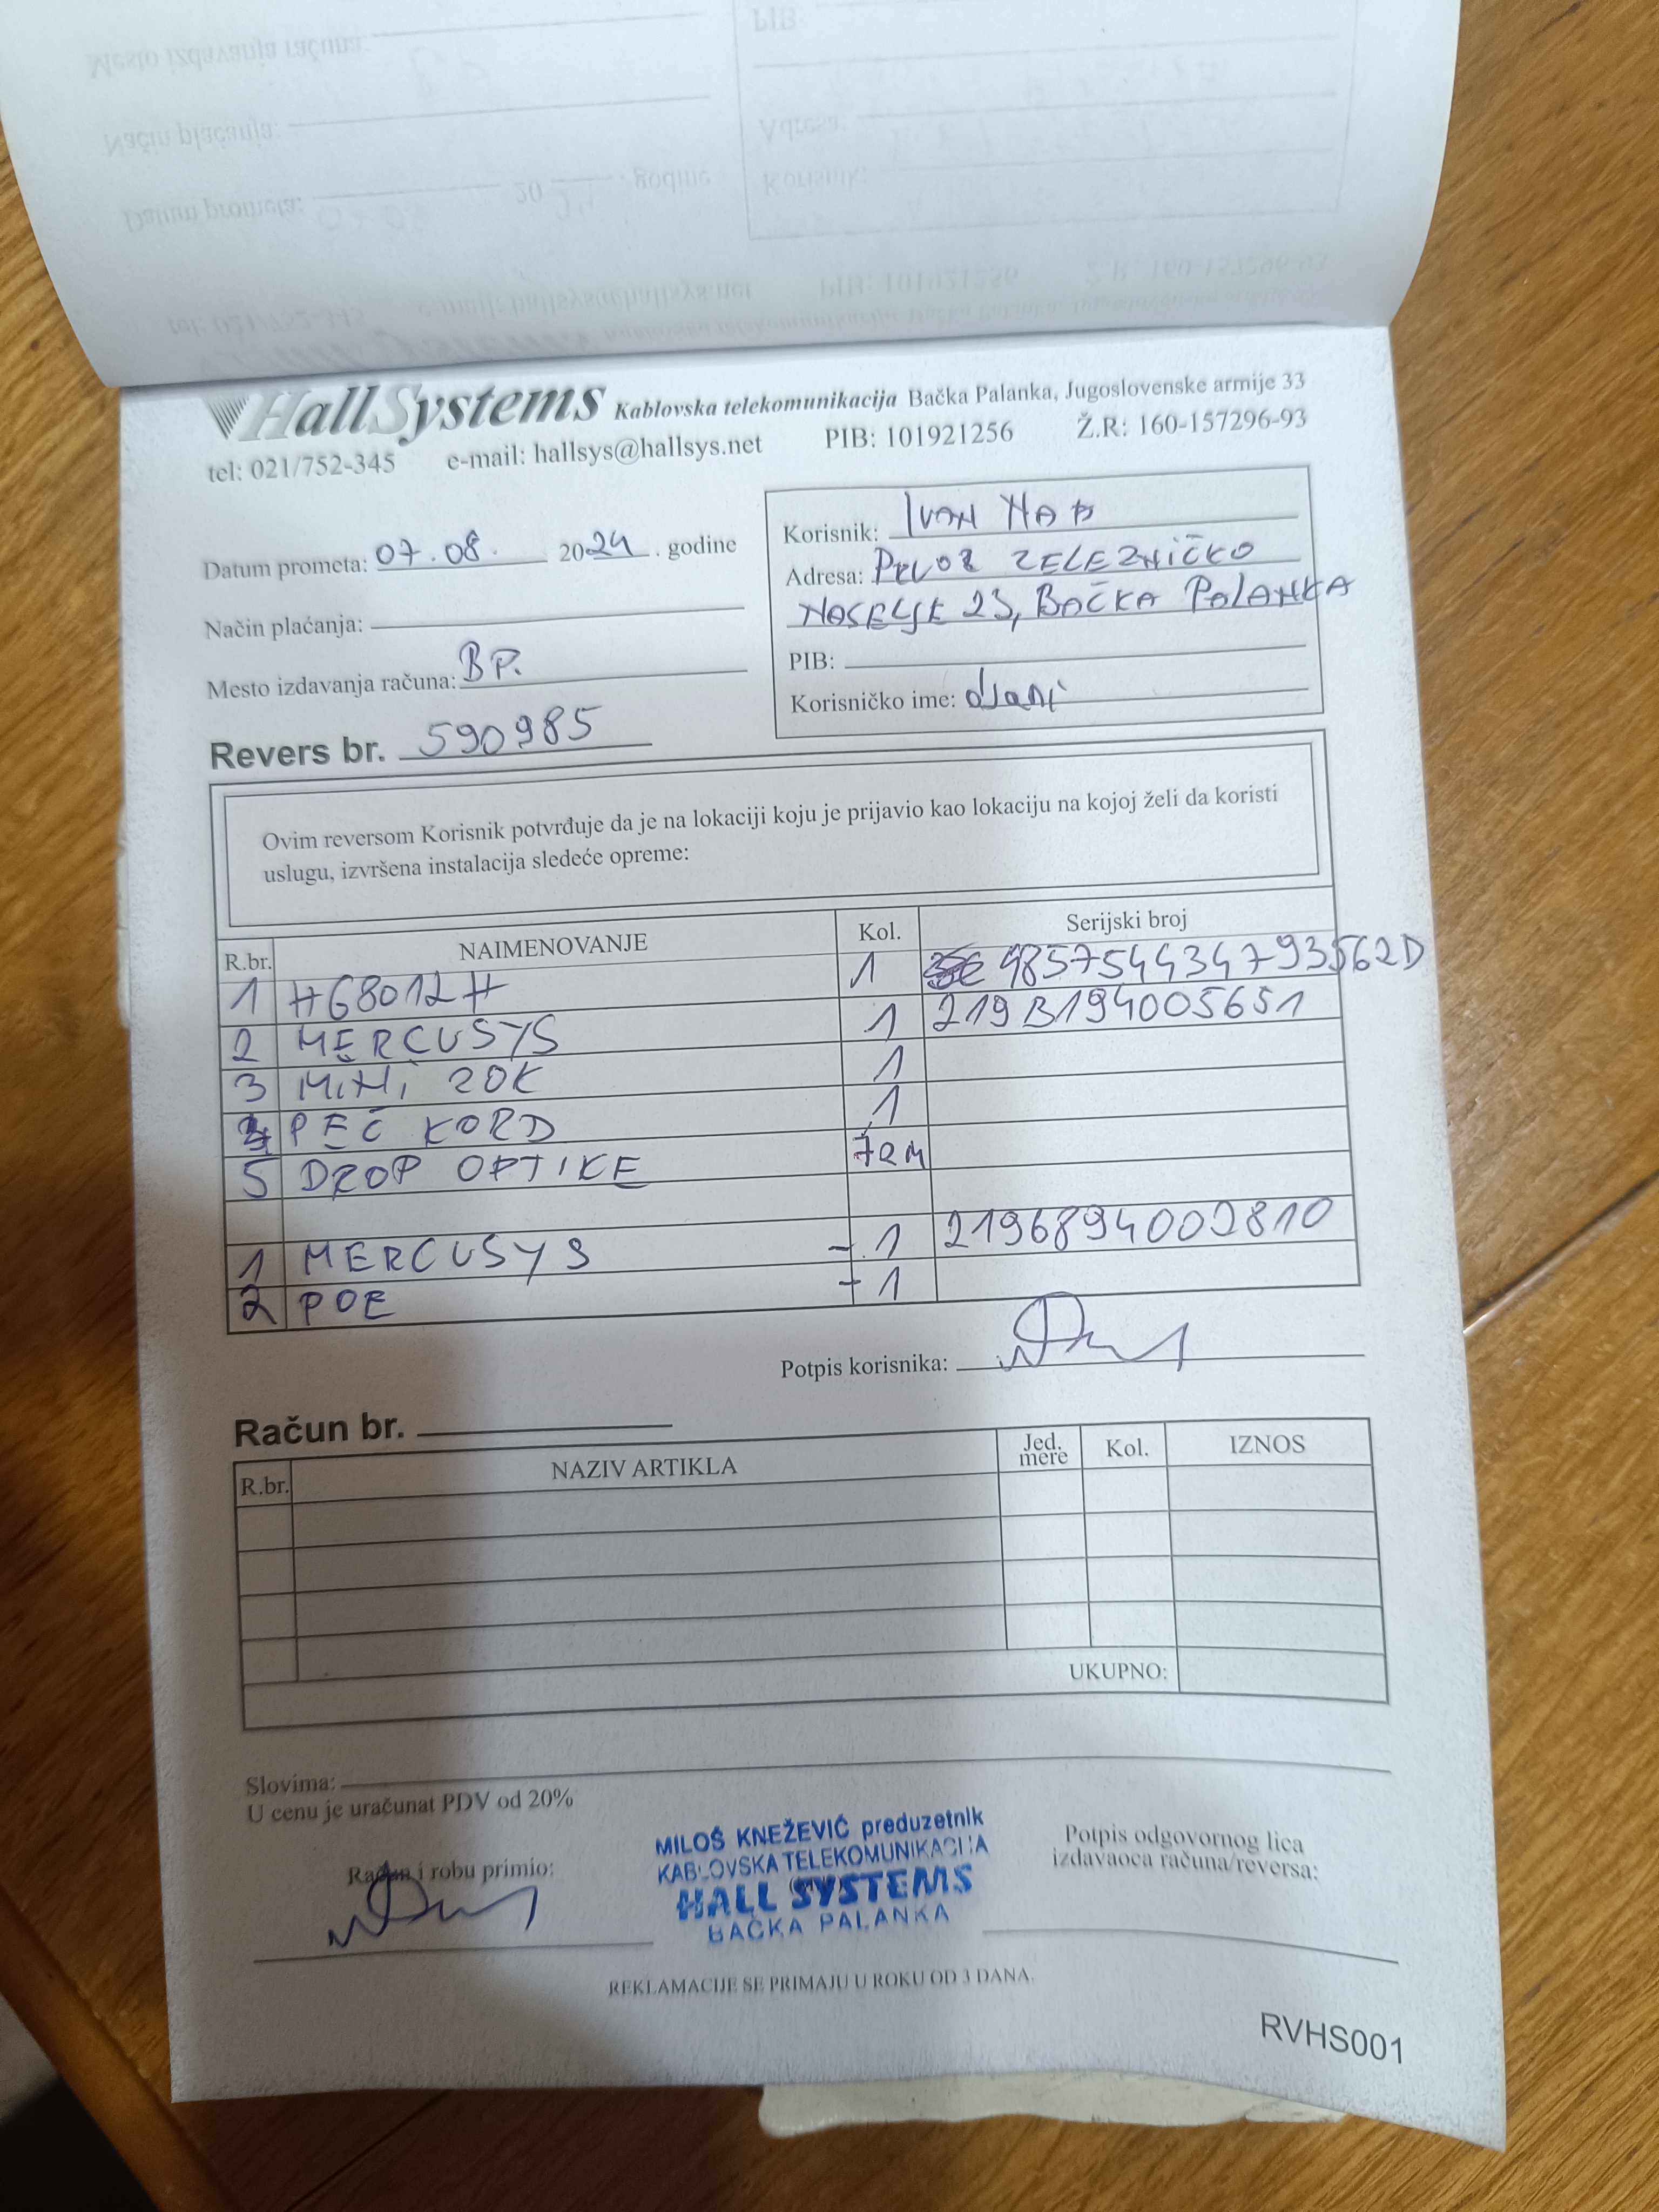 HallSystems Kablovska telekomunikacija Bačka Palanka, Jugoslovenske armije 33
tel: 021/752-345 e-mail: hallsys@hallsys.net PIB: 101921256 Ž.R: 160-157296-93
Datum prometa: 07.08. 2024. godine
Način plaćanja:
Mesto izdavanja računa: BP.
Korisnik: IVAN
Adresa: ZELEZNIČKO
NASELJE 23, BAČKA PALANKA
PIB:
Korisničko ime: djani
Revers br. 590985
Ovim reversom Korisnik potvrđuje da je na lokaciji koju je prijavio kao lokaciju na kojoj želi da koristi
uslugu, izvršena instalacija sledeće opreme:
R.br. NAIMENOVANJE Kol. Serijski broj
1 HG8012H 1 485754434793562D
2 MERCUSYS 1 219B194005651
3 MINI ZOK 1
4 PEČ KORD 1
5 DROP OPTIKE
1 MERCUSYS -1 2196894002810
2 POE -1
Potpis korisnika:
Račun br.
R.br. NAZIV ARTIKLA Jed. mere Kol. IZNOS
UKUPNO:
Slovima:
U cenu je uračunat PDV od 20%
Račun i robu primio:
MILOŠ KNEŽEVIĆ preduzetnik
KABLOVSKA TELEKOMUNIKACIJA
HALL SYSTEMS
BAČKA PALANKA
Potpis odgovornog lica
izdavaoca računa/reversa:
REKLAMACIJE SE PRIMAJU U ROKU OD 3 DANA.
RVHS001